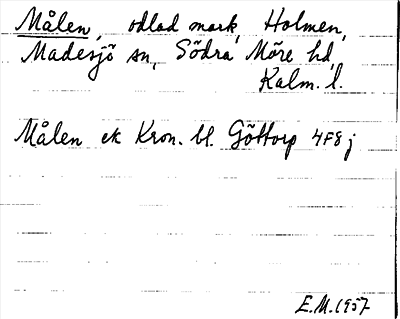 Målen, odlad mark, Holmen,
Madesjö sn, Södra Möre hd,
Kalm. l.
Målen ek Kron. bl. Göttorp 4F8j
E.M. 1957